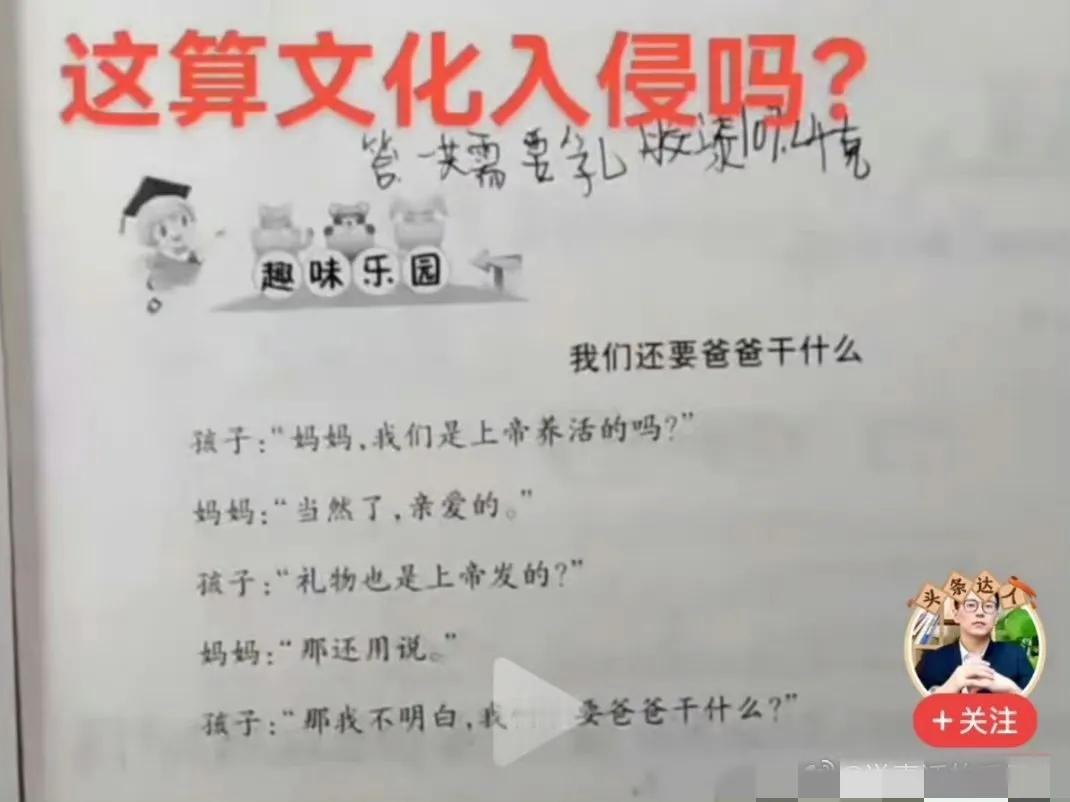 这算文化入侵吗?
答:一共需要乳胶漆107.4克
趣味乐园
我们还要爸爸干什么
孩子:“妈妈,我们是上帝养活的吗?”
妈妈:“当然了,亲爱的。”
孩子:“礼物也是上帝发的?”
妈妈:“那还用说。”
孩子:“那我不明白,我 要爸爸干什么?”
头条达人
+关注